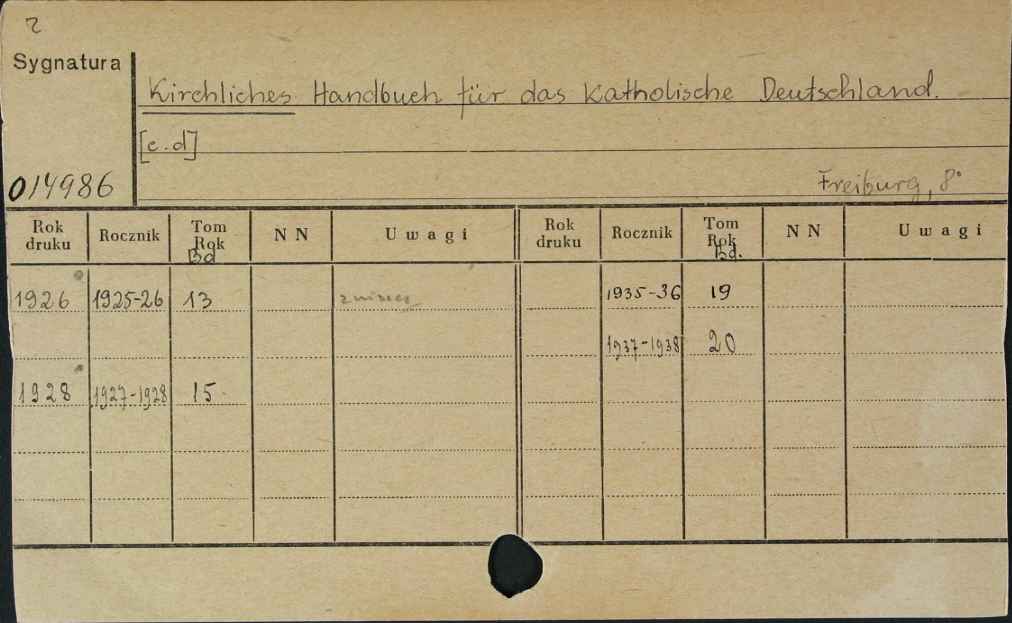 2
Sygnatura
Kirchliches Handbuch für das Katholische Deutschland.
[c.d]
014986
Freiburg, 8°
Rok druku Rocznik Tom Rok Bd N N Uwagi Rok druku Rocznik Tom Rok Bd. N N Uwagi
1926 1925-26 13 1935-36 19
1937-1938 20
1928 1927-1928 15